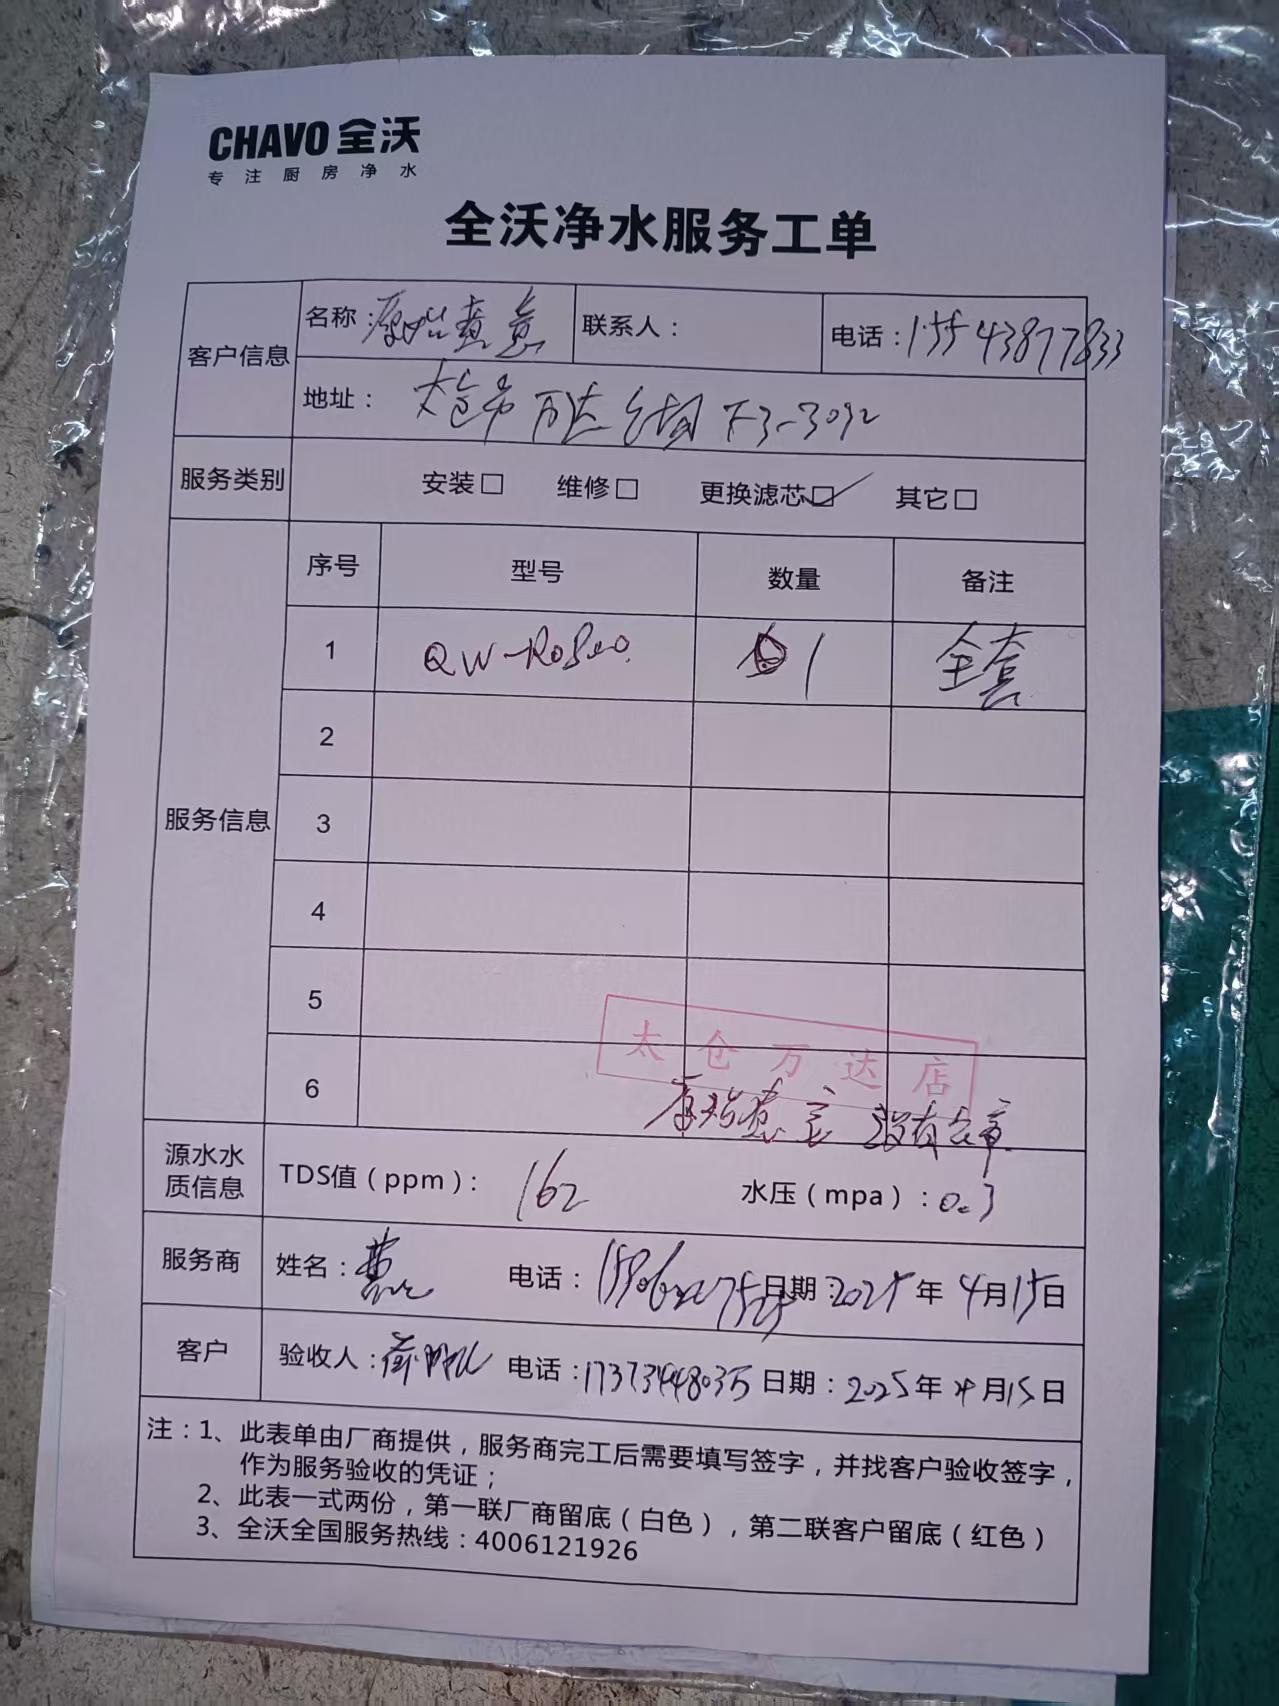 CHAVO 全沃
专注厨房净水
全沃净水服务工单
客户信息 名称： 联系人： 电话：15543877833
地址：太仓市万达 F3-3092
服务类别 安装□ 维修□ 更换滤芯☑ 其它□
服务信息 序号 型号 数量 备注
1 QW-Ro800 1 全套
2
3
4
5
太仓万达店
6 没有公章
源水水质信息 TDS值（ppm）：162 水压（mpa）：0.3
服务商 姓名： 电话： 日期：2025年4月15日
客户 验收人： 电话：17373448035 日期：2025年4月15日
注：1、此表单由厂商提供，服务商完工后需要填写签字，并找客户验收签字，
作为服务验收的凭证；
2、此表一式两份，第一联厂商留底（白色），第二联客户留底（红色）
3、全沃全国服务热线：4006121926